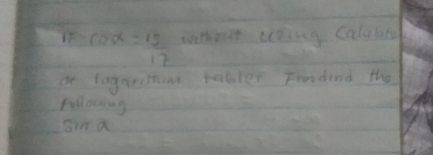 If cos α = 15 without using Calculator
17
or logarithm tables Find the
following
Sin α